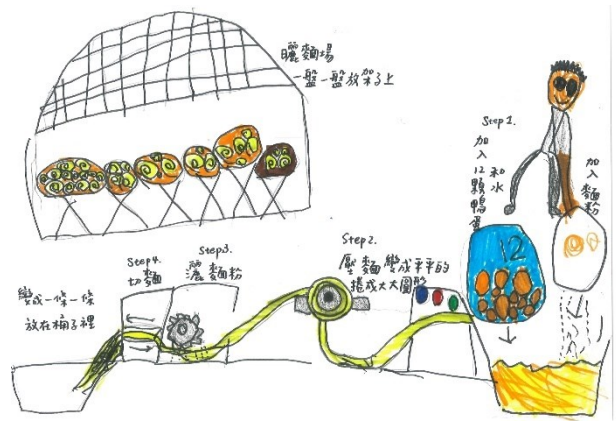 曬麵場
一盤一盤放架子上
Step1.
加入12顆鴨蛋
和水
加入麵粉
12
Step2.
壓麵變成平平的
捲成大大圓形
Step3.
灑麵粉
Step4.
切麵
變成一條一條
放在桶子裡